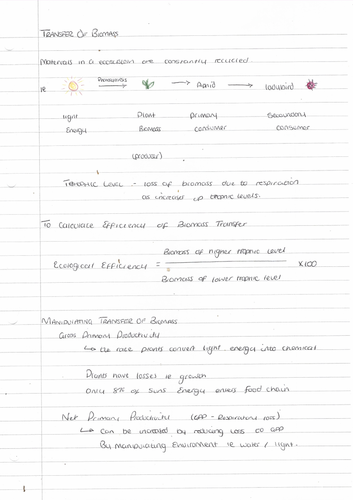 TRANSFER OF BIOMASS
Materials in a ecosystem are constantly recycled.
ie
Photosynthesis
→ Aphid → ladybird
light Plant primary Secoundary
Energy Biomass consumer consumer
(producer)
TROPHIC LEVEL - loss of biomass due to respiration
as increases up trophic levels.
To Calculate Efficiency of Biomass Transfer
Ecological Efficiency = Biomass of higher trophic Level
Biomass of lower trophic level
x100
MANIPULATING TRANSFER OF BIOMASS
Gross Primary Productivity
↳ the rate plants convert light energy into chemical
Plants have losses ie growth
Only 8% of suns Energy enters food chain.
Net Primary Productivity (GPP - Respiratory loss)
↳ Can be increased by reducing loss to GPP
By Manipulating Environment ie water / light.
1